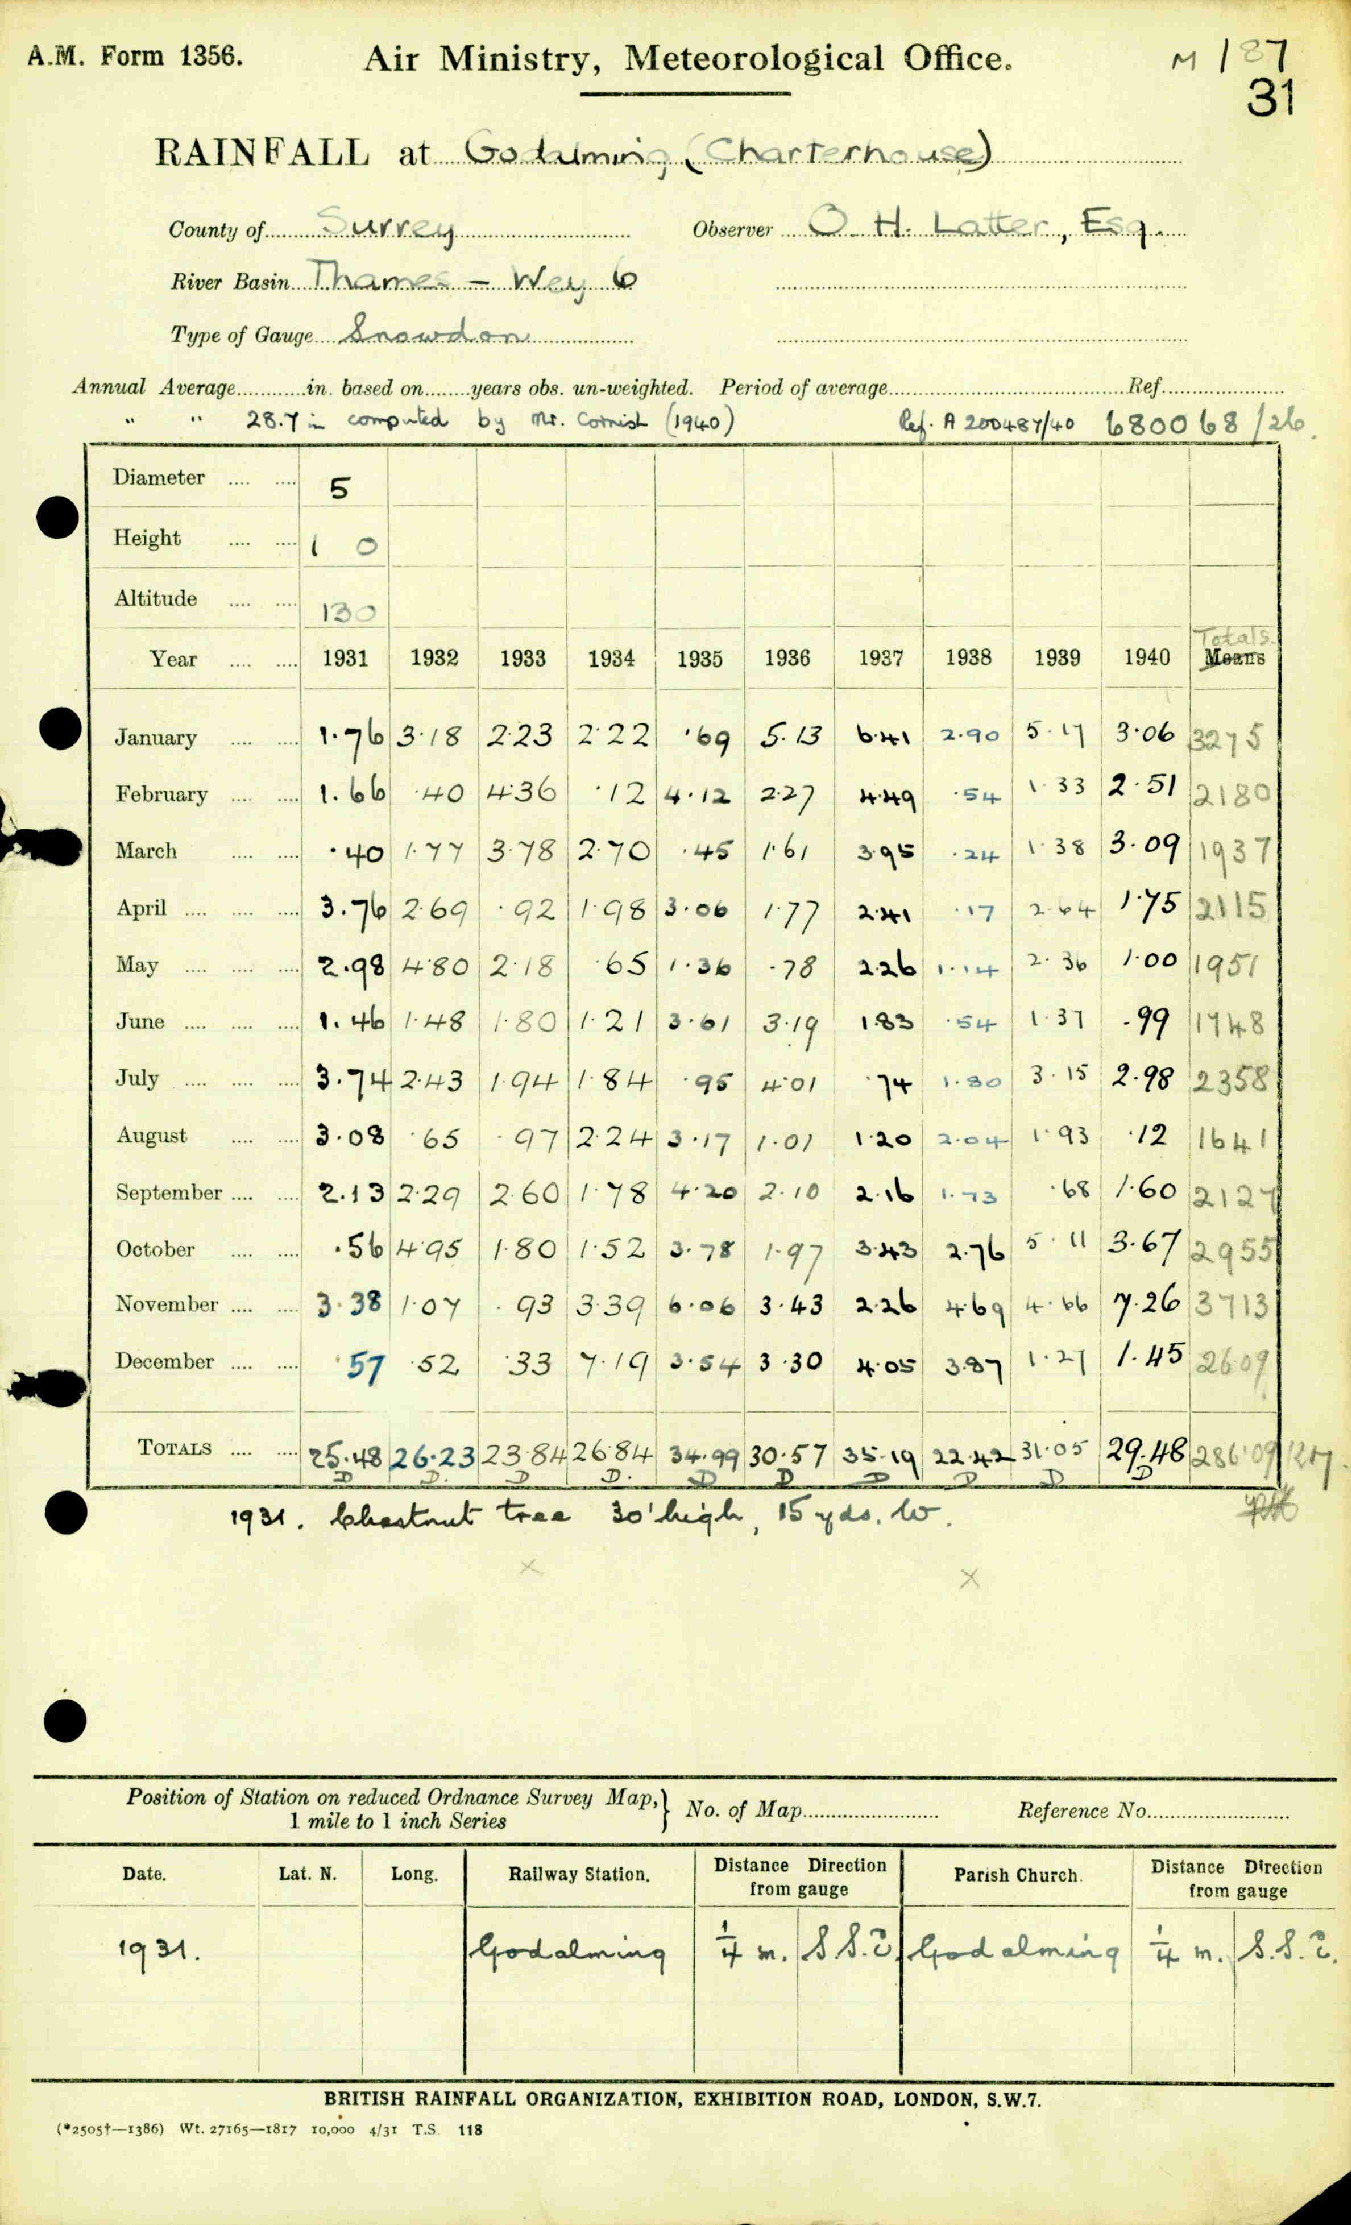 A.M. Form 1356. Air Ministry, Meteorological Office. M 187
31
RAINFALL at Godalming (Charterhouse)
County of Surrey Observer O. H. Latter, Esq.
River Basin Thames – Wey 6
Type of Gauge Snowdon
Annual Average in. based on years obs. un-weighted. Period of average Ref.
" " 28.7 in computed by Mr. Cornish (1940) Ref. A 200487/40 680068/26
Diameter 5
Height 1 0
Altitude 130
Totals
Year 1931 1932 1933 1934 1935 1936 1937 1938 1939 1940 Means
January 1.76 3.18 2.23 2.22 .69 5.13 6.41 2.90 5.17 3.06 3275
February 1.66 .40 4.36 .12 4.12 2.27 4.49 .54 1.33 2.51 2180
March .40 1.77 3.78 2.70 .45 1.61 3.95 .24 1.38 3.09 1937
April 3.76 2.69 .92 1.98 3.06 1.77 2.41 .17 2.64 1.75 2115
May 2.98 4.80 2.18 .65 1.36 .78 2.26 1.14 2.36 1.00 1951
June 1.46 1.48 1.80 1.21 3.61 3.19 1.83 .54 1.37 .99 1748
July 3.74 2.43 1.94 1.84 .95 4.01 .74 1.80 3.15 2.98 2358
August 3.08 .65 .97 2.24 3.17 1.01 1.20 2.04 1.93 .12 1641
September 2.13 2.29 2.60 1.78 4.20 2.10 2.16 1.73 .68 1.60 2127
October .56 4.95 1.80 1.52 3.78 1.97 3.43 2.76 5.11 3.67 2955
November 3.38 1.07 .93 3.39 6.06 3.43 2.26 4.69 4.66 7.26 3713
December .57 .52 .33 7.19 3.54 3.30 4.05 3.87 1.27 1.45 2609
TOTALS 25.48 26.23 23.84 26.84 34.99 30.57 35.19 22.42 31.05 29.48 286.09
D D. D D. D D D D D D
1931. Chestnut tree 30' high, 15 yds. W.
Position of Station on reduced Ordnance Survey Map, No. of Map Reference No.
1 mile to 1 inch Series
Date. Lat. N. Long. Railway Station. Distance Direction from gauge Parish Church. Distance Direction from gauge
1931. Godalming 1/4 m. S.S.E. Godalming 1/4 m. S.S.E.
BRITISH RAINFALL ORGANIZATION, EXHIBITION ROAD, LONDON, S.W.7.
(*2505†—1386) Wt. 27165—1817 10,000 4/31 T.S. 118